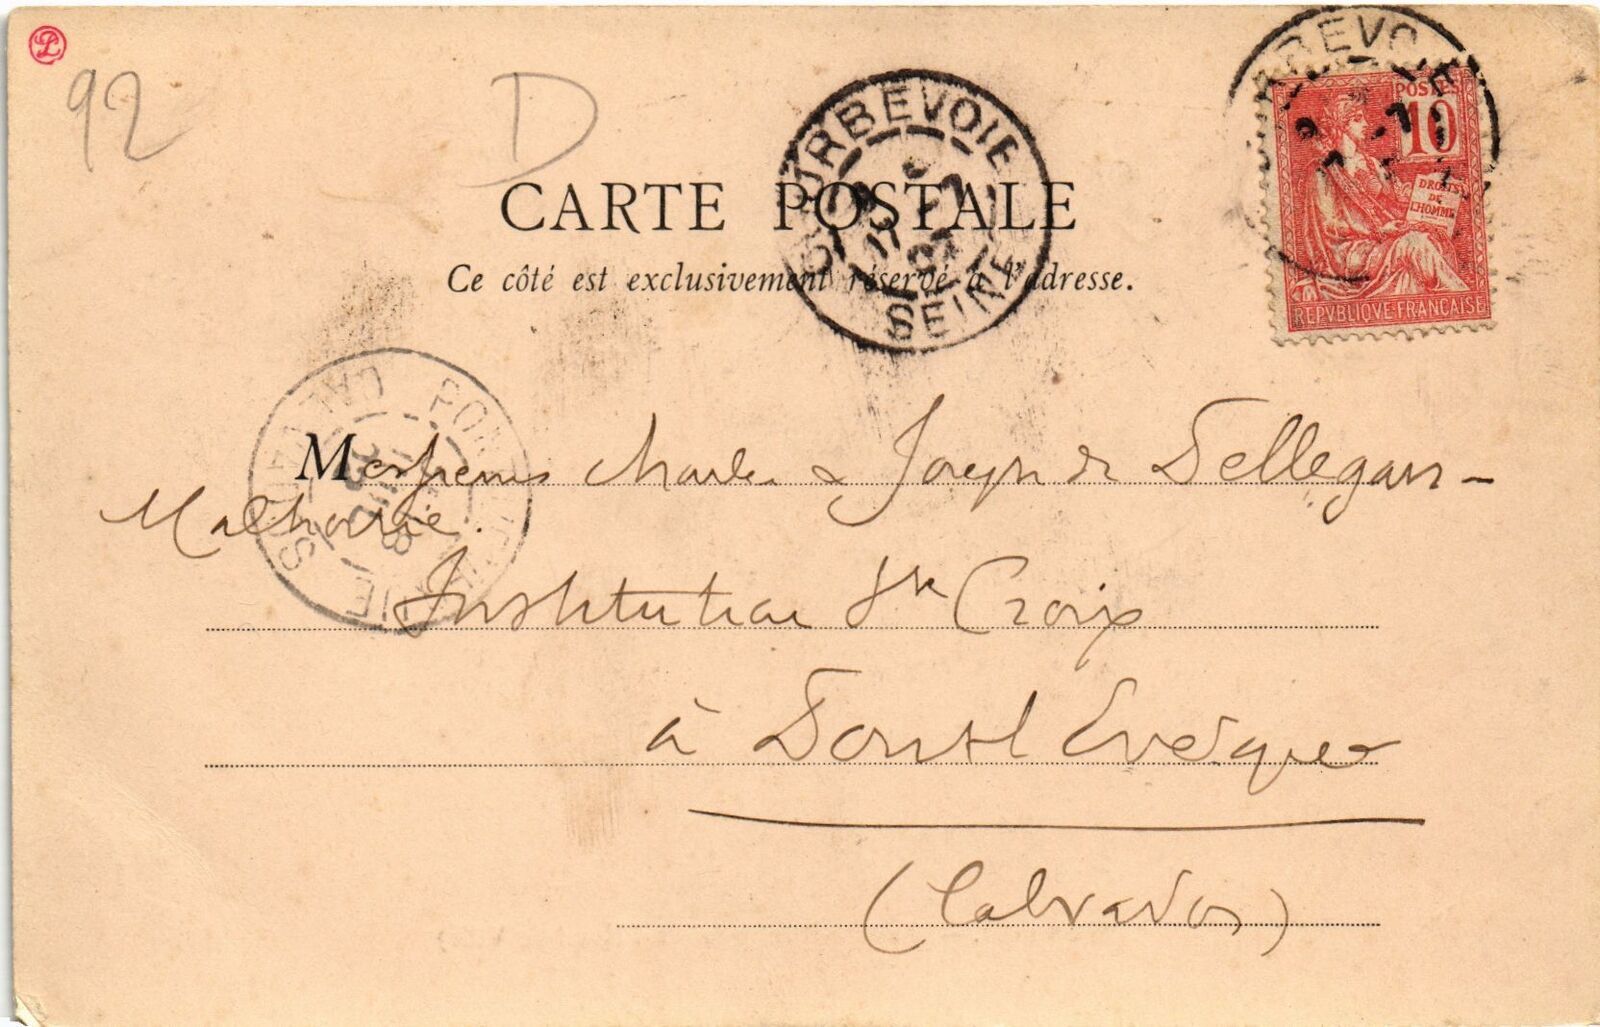 92
D
CARTE POSTALE
Ce côté est exclusivement réservé à l'adresse.
COURBEVOIE
SEINE
RBEVOIE
POSTES
10
DROITS
DE
L'HOMME
REPVBLIQVE FRANÇAISE
CALVADOS
Messieurs Charles & Joseph de Pellegars-
Malhortie.
Institution Ste Croix
à Pont l Evêque
(Calvados)